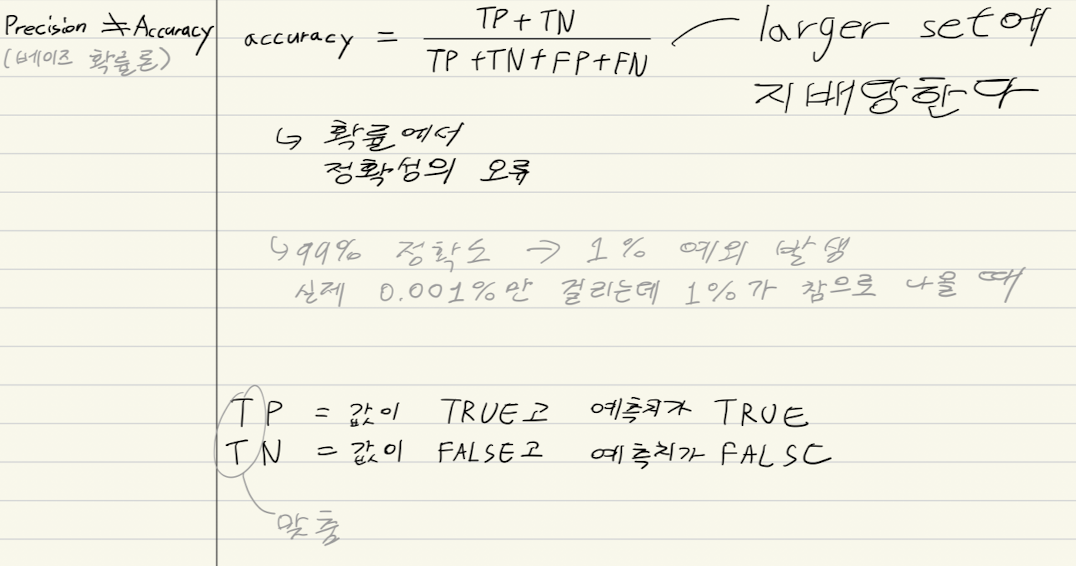 Precision ≠ Accuracy
(베이즈 확률론)
accuracy = (TP + TN) / (TP + TN + FP + FN)
larger set에
지배당한다
↳ 확률에서
정확성의 오류
↳ 99% 정확도 → 1% 예외 발생
실제 0.001%만 걸리는데 1%가 참으로 나올 때
TP = 값이 TRUE고 예측치가 TRUE
TN = 값이 FALSE고 예측치가 FALSE
맞춤